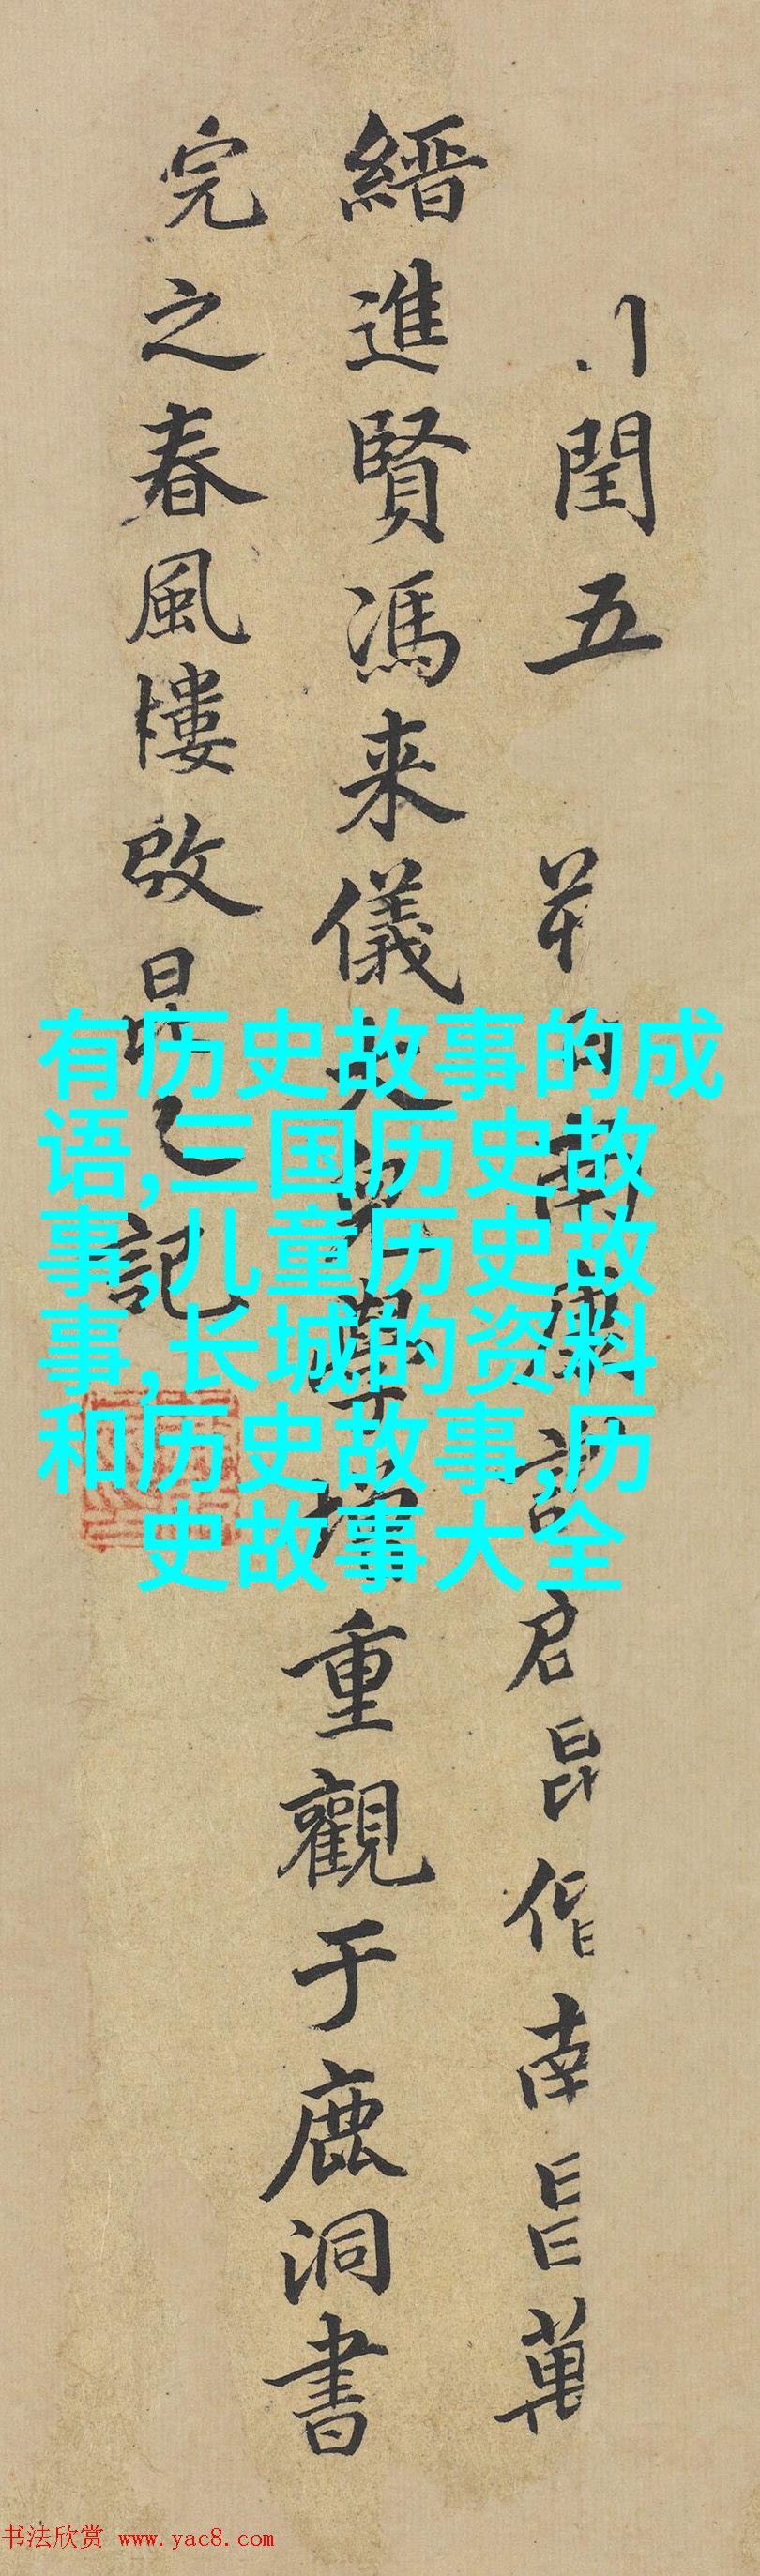 閏五
縉進賢馮来儀
重觀于鹿洞書
完之春風樓啟
記
启昆偕南昌萬
有历史故事的成
语,三国历史故
事,儿童历史故
事,长城的资料
和历史故事,历
史故事大全
书法欣赏 www.yac8.com